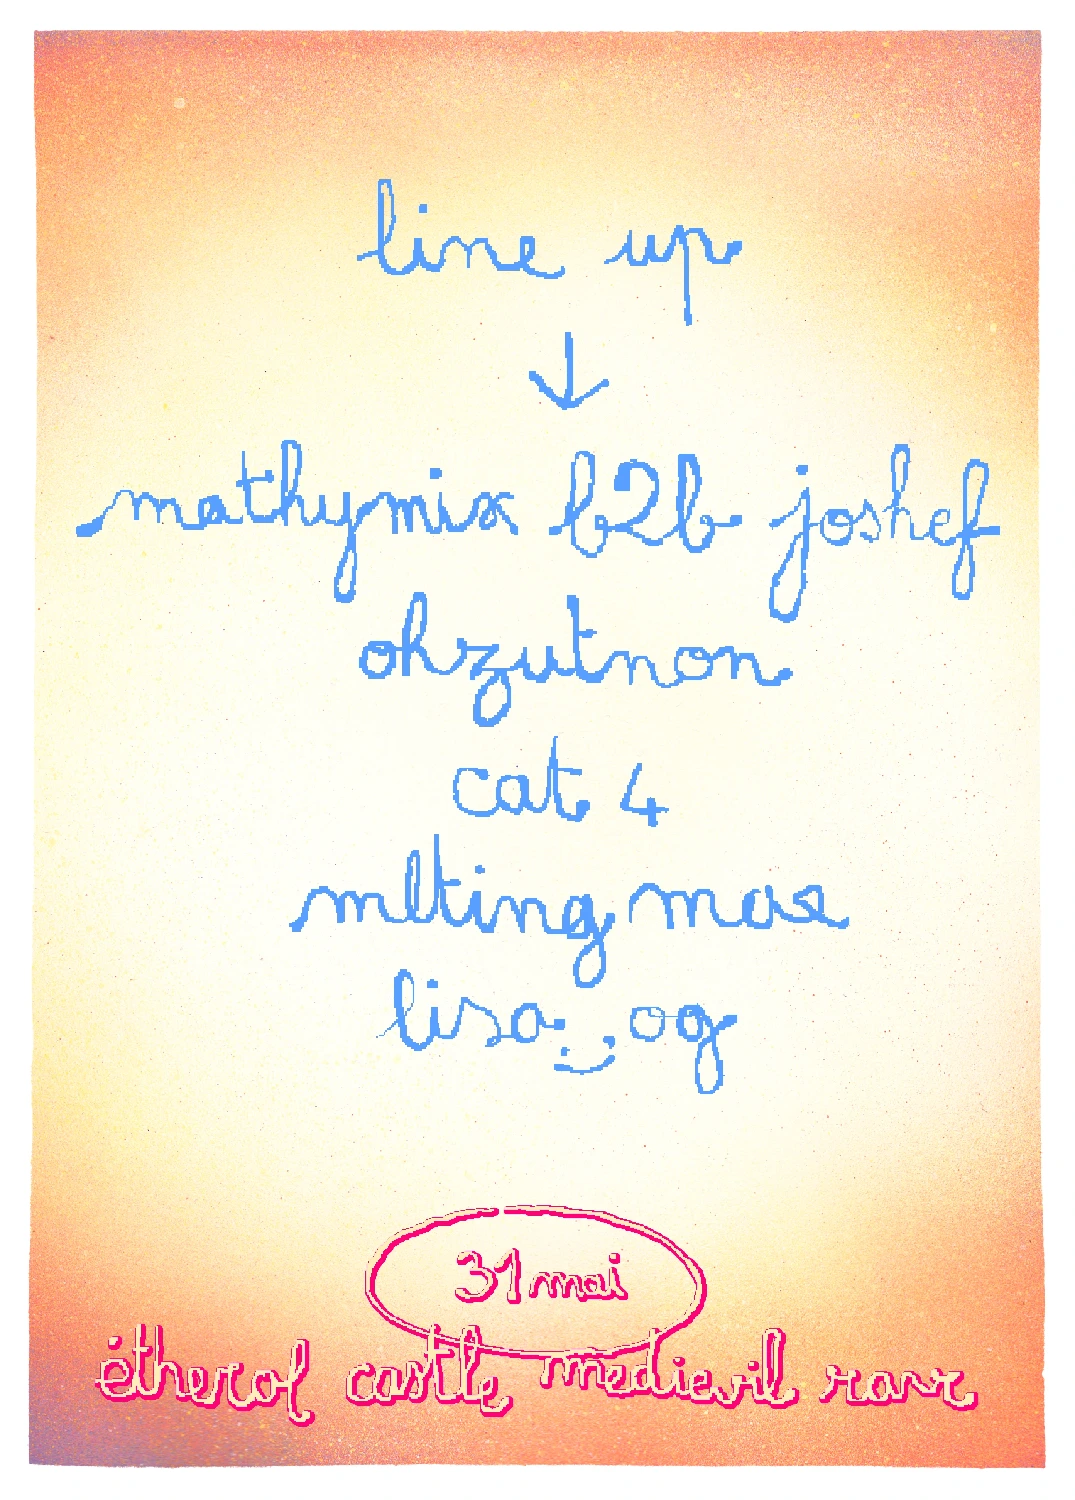 line up
↓
mathymix b2b joshef
ohzutnon
cat 4
mlting max
lisa og
31 mai
castle medievil